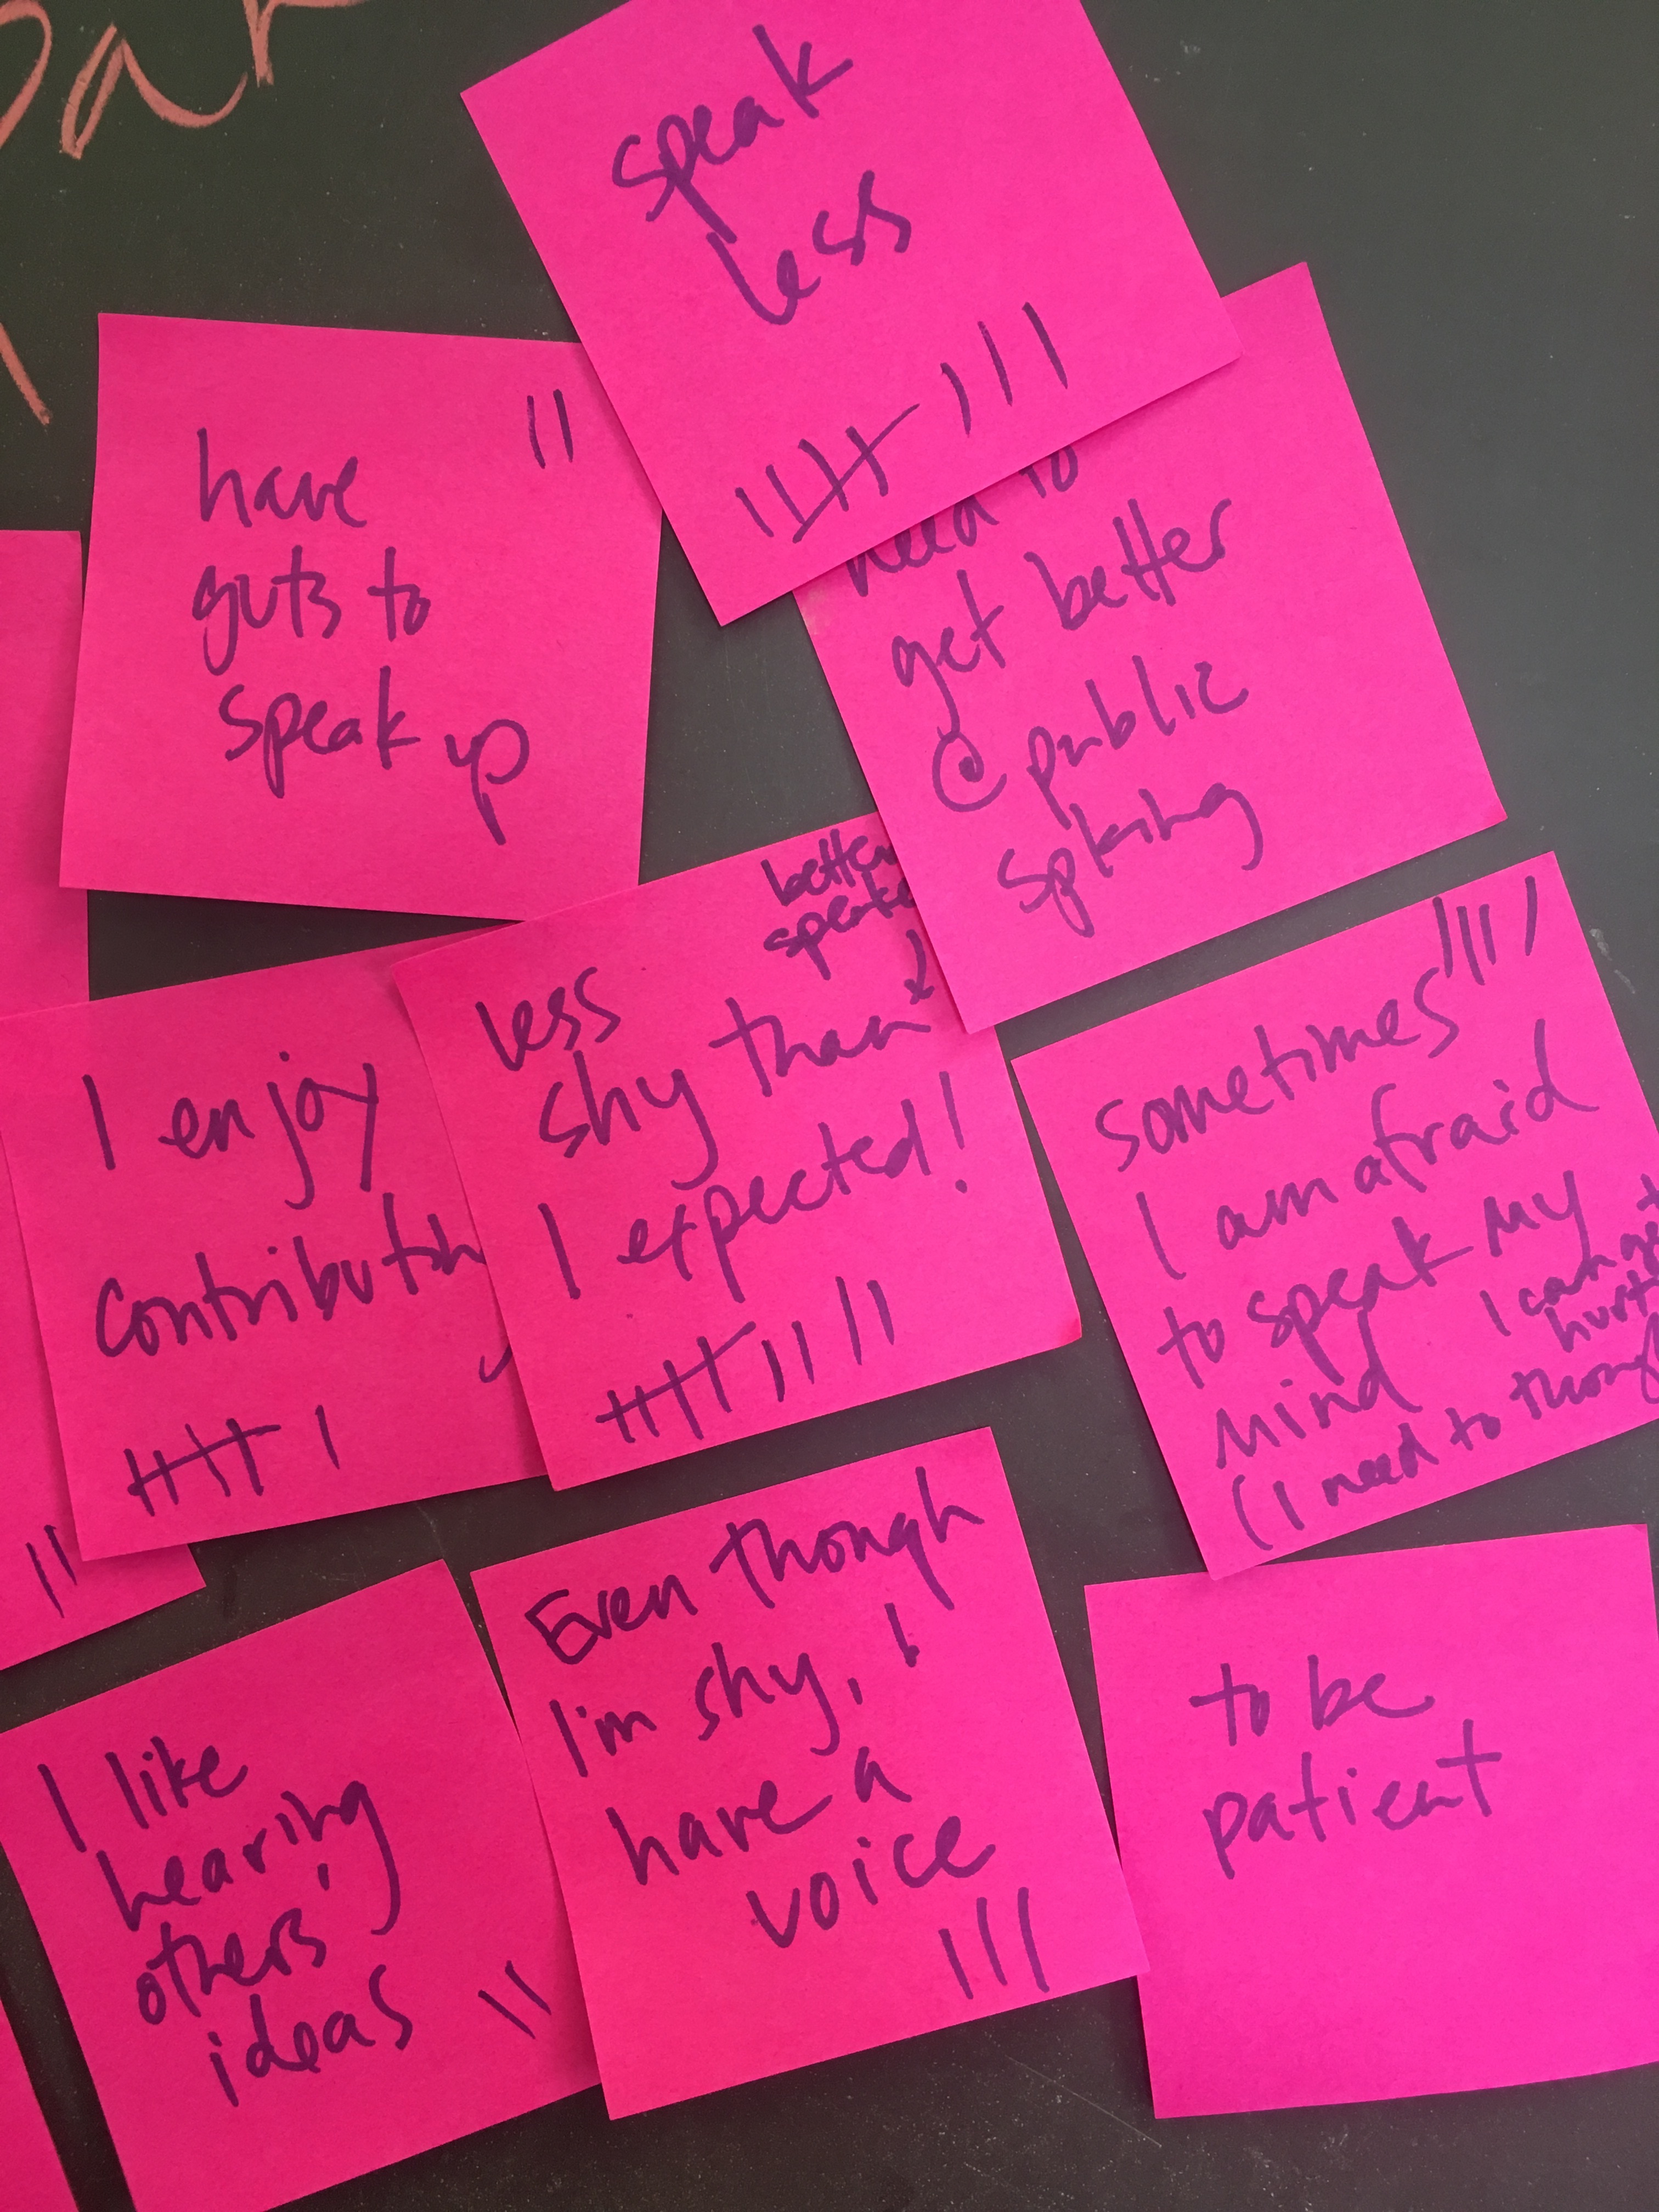 speak
less
have
guts to
speak up
need to
get better
@ public
spking
better
less
shy than
I expected!
I enjoy
sometimes
I am afraid
to speak my
mind
I can get
hurt
(I need to though
I like
hearing
others'
ideas
Even though
I'm shy, I
have a
voice
to be
patient